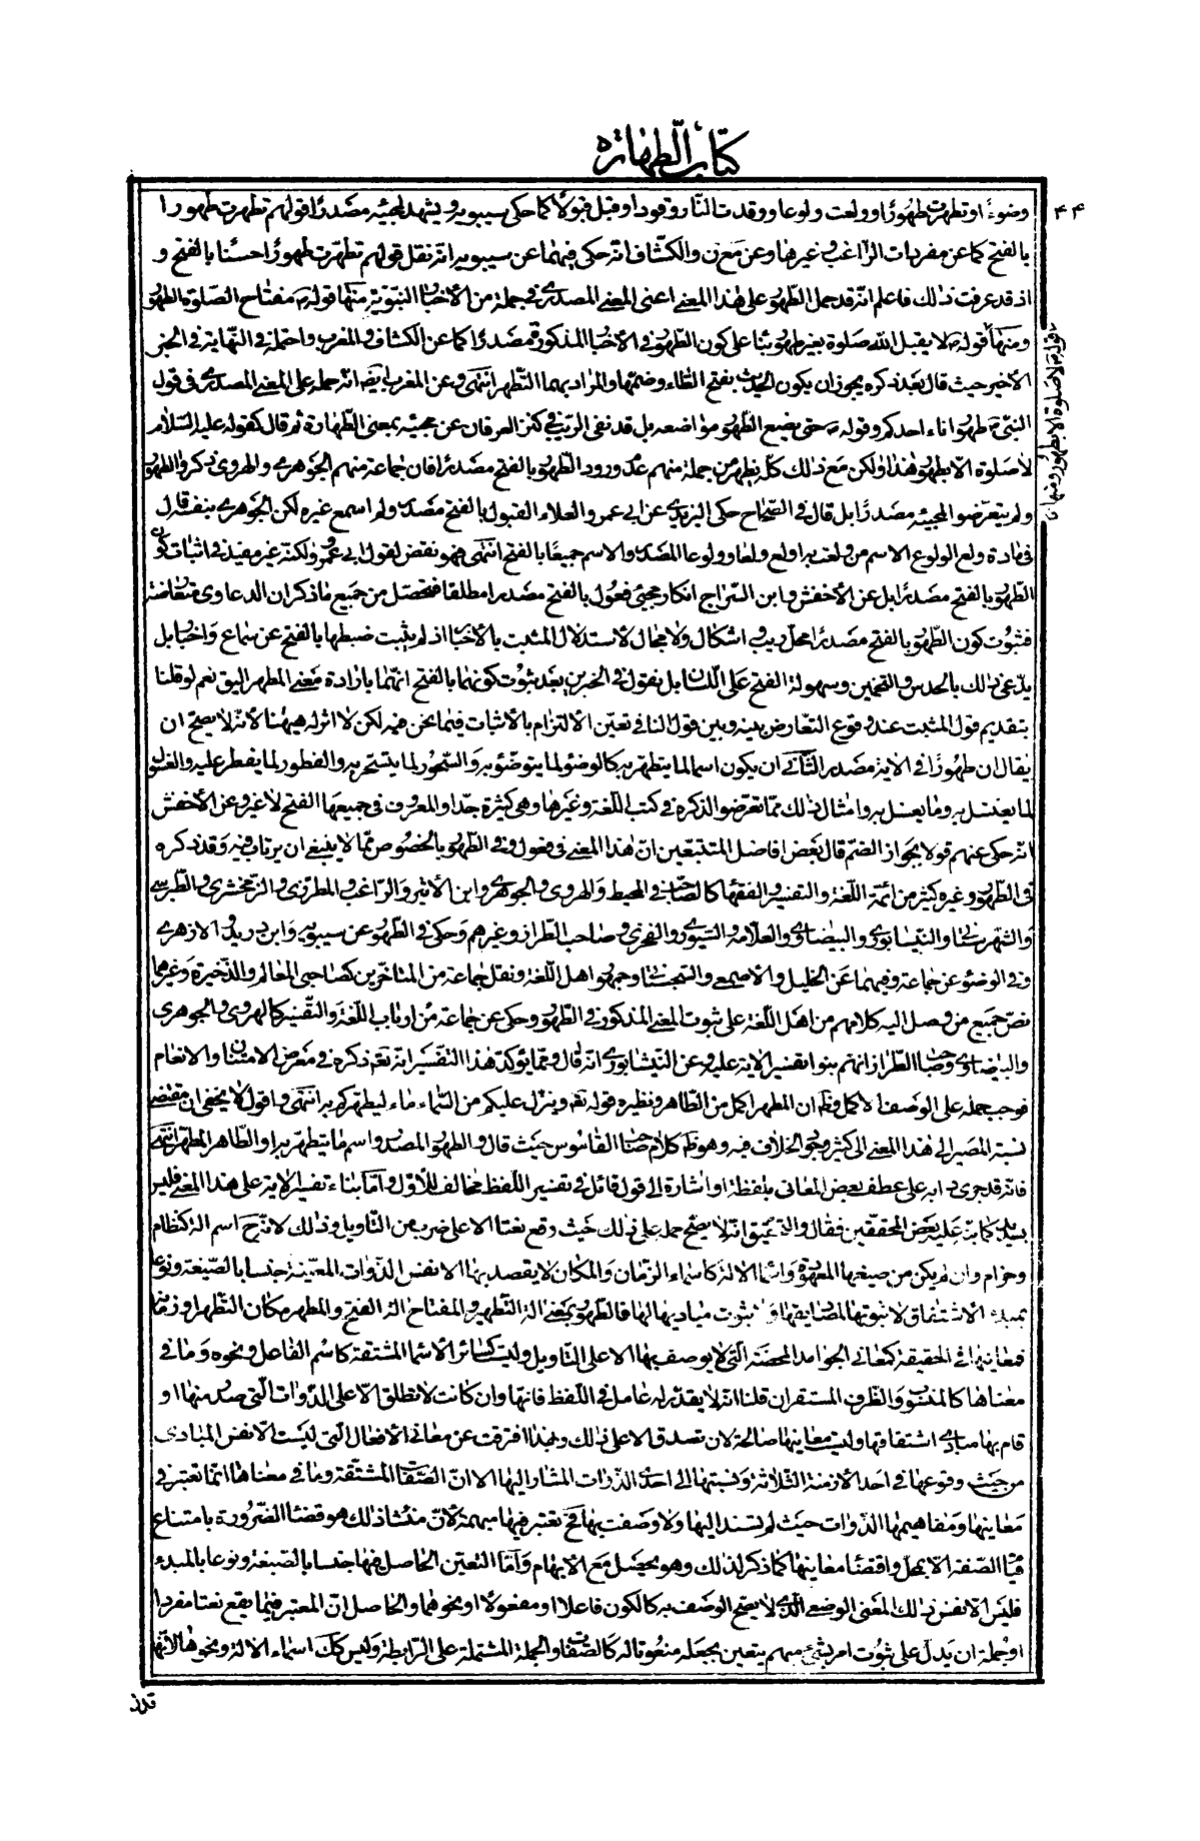 كتاب الطهارة
٤٤
وضوءًا وتطهرت طهورًا وولعت ولوعا ووقدت النار وقودا وقبل قبولًا كما حكى سيبويه ويشهد لمجيئه مصدرًا قولهم تطهرت طهورا
بالفتح كما عن مفردات الراغب وغيرها وعن المغرب والكشاف انه حكى فيهما عن سيبويه انه نقل قولهم تطهرت طهورًا حسنا بالفتح و
اذ قد عرفت ذلك فاعلم انه قد حمل الطهور على هذا المعنى اعنى المعنى المصدري في جملة من الأخبار النبوية منها قوله ص مفتاح الصلوة الطهور
ومنها قوله ص لا يقبل الله صلوة بغير طهور بناء على كون الطهور في الأخبار المذكورة مصدرًا كما عن الكشاف والمغرب واحتمله في النهاية في الخبر
الأخير حيث قال بعد ذكره يجوز ان يكون الحديث بفتح الطاء وضمها والمراد بهما التطهر انتهى وعن المغرب ايضا انه حمله على المعنى المصدري في قول
النبي ص طهور اناء احدكم وقوله ص حتى يضع الطهور مواضعه بل قد نفى الريب في كنز العرفان عن مجيئه بمعنى الطهارة ثم قال كقوله عليه السلام
لا صلوة الا بطهور هذا ولكن مع ذلك كله يظهر من جملة منهم عدم ورود الطهور بالفتح مصدرًا فان جماعة منهم الجوهري والهروى ذكروا الطهور
ولم يتعرضوا لمجيئه مصدرًا بل قال في الصحاح حكى اليزيدي عن ابى عمرو العلاء القبول بالفتح مصدر ولم اسمع غيره لكن الجوهري بنفسه قال
في مادة ولع الولوع الاسم من ولعت به اولع ولعا وولوعا المصدر والاسم جميعًا بالفتح انتهى فهو نقض لقول ابى عمرو ولكنه غير مفيد في اثبات كون
الطهور بالفتح مصدرًا بل عن الأخفش وابن السراج انكار مجيئ فعول بالفتح مصدرا مطلقا فتحصل من جميع ما ذكر ان الدعاوى متعارضة
فثبوت كون الطهور بالفتح مصدرًا محل ريب و اشكال ولا مجال لأستدلال المثبت بالأخبار اذ لم يثبت ضبطها بالفتح عن سماع واخبار بل
يدعى ذلك بالحدس والتخمين وسهولة الفتح على اللسان بل نقول في الخبرين بعد ثبوت كونهما بالفتح انهما بارادة معنى المطهر اليق نعم لو قلنا
بتقديم قول المثبت عند وقوع التعارض بينه وبين قول النافى تعين الألتزام بالأثبات فيما نحن فيه لكن لا اثر له هيهنا لأنه لا يصح ان
يقال ان طهورًا في الاية مصدر الثاني ان يكون اسما لما يتطهر به كالوضوء لما يتوضؤ به والسحور لما يتسحر به والفطور لما يفطر عليه والغسول
لما يغتسل به وما يغسل به وامثال ذلك مما تعرضوا لذكره في كتب اللغة وغيرها وهى كثيرة جدا والمعروف في جميعها الفتح لا غير وعن الأخفش
انه حكى عنهم قولا بجواز الضم قال بعض افاضل المتتبعين ان هذا المعنى في فعول وفى الطهور بالخصوص مما لا ينبغى ان يرتاب فيه وقد ذكره
فى الطهور وغيره كثير من ائمة اللغة والتفسير والفقهاء كالصاحب في المحيط والهروى والجوهري وابن الأثير والراغب والمطرزي والزمخشرى والطبرسي
والشهرستانى والنيسابورى والبيضاوي والعلامة والسيورى والفخرى وصاحب الطراز وغيرهم وحكى في الطهور عن سيبويه وابن دريد والازهري
وفى الوضوء عن جماعة وفيهما عن الخليل والاصمعي والسجستانى وجمهور اهل اللغة ونقل جماعة من المتأخرين كصاحبى المعالم والذخيرة وغيرهما
نص جميع من وصل اليه كلامهم من اهل اللغة على ثبوت المعنى المذكور في الطهور وحكى عن جماعة من ارباب اللغة والتفسير كالهروى والجوهرى
والبيضاوي وصاحب الطراز انهم بنوا تفسير الاية عليه وعن النيشابوري انه قال ومما يؤكد هذا التفسير انه تعم ذكره في معرض الامتنان والانعام
فوجب حمله على الوصف الاكمل وظ ان المطهر اكمل من الطاهر ونظيره قوله تعم وينزل عليكم من السماء ماء ليطهركم به انتهى واقول لا يخفى ان مقتضى
نسبة المصير الى هذا المعنى الى كثير وجود الخلاف فيه وهو ظم كلام صاحب القاموس حيث قال والطهور المصدر واسم ما يتطهر به او الطاهر المطهر انتهى
فانه قد جرى دابه على عطف بعض المعانى بلفظة او اشارة الى قول قائل في تفسير اللفظ مخالف للأول واما بناء تفسير الاية على هذا المعنى فليس
بسديد كما نبه عليه بعض المحققين فقال والتحقيق انه لا يصح حمله على ذلك حيث وقع نعتا الا على ضرب من التاويل وذلك لاندراجه اسم الآلة كنظام
وحزام وان لم يكن من صيغها المعهودة واسماء الالة كاسماء الزمان والمكان لا يقصد بها الا نفس الذوات المعينة جنسا بالصيغة ونوعا
بمبدء الاشتقاق لا ثبوتها لمصاديقها ولا ثبوت مباديها لها فالطهور بمعنى الة التطهير والمفتاح الة الفتح والمطهر مكان التطهر او زمانه
فمعانيها في الحقيقة كمعاني الجوامد المحضة التى لا يوصف بها الا على التاويل وليست كسائر الأسماء المشتقة كاسم الفاعل ونحوه وما في
معناها كالمنسوب والظرف المستقر ان قلنا انه لا يقدر له عامل في اللفظ فانها وان كانت لا تطلق الا على الذوات التي صدر منها او
قام بها مبادي اشتقاقها وليست معاينها صالحة لان تصدق الا على ذلك وبهذا افترقت عن معانى الأفعال التى ليست الا نفس المبادى
من حيث وقوعها في احد الأزمنة الثلاثة ونسبتها الى احدى الذوات المشار اليها الا ان الصفات المشتقة وما في معناها انما تعتبر في
معاينها ومفاهيمها الذوات حيث لم تسند اليها ولا وصفت بها فح تعتبر فيها مبهمة لان منشا ذلك هو قضاء الضرورة بامتناع
قيام الصفة الا بمحل واقتضاء معاينها كما ذكر لذلك وهو يحصل مع الابهام واما التعين الحاصل فيها جنسا بالصيغة ونوعا بالمبدء
فليس الا نفس ذلك المعنى الوضعى الذي لا يصح الوصف به كالكون فاعلا او مفعولا او نحوهما والحاصل ان المعتبر فيما يقع نعتا مفردا
او جملة ان يدل على ثبوت امر بشئ مبهم يتعين بجعله منعوتا له كالصفة والجملة المشتملة على الرابطة وليس كك اسماء الالة ونحوها لأنها
قوله ص لا صلوة الا بطهور ومنها